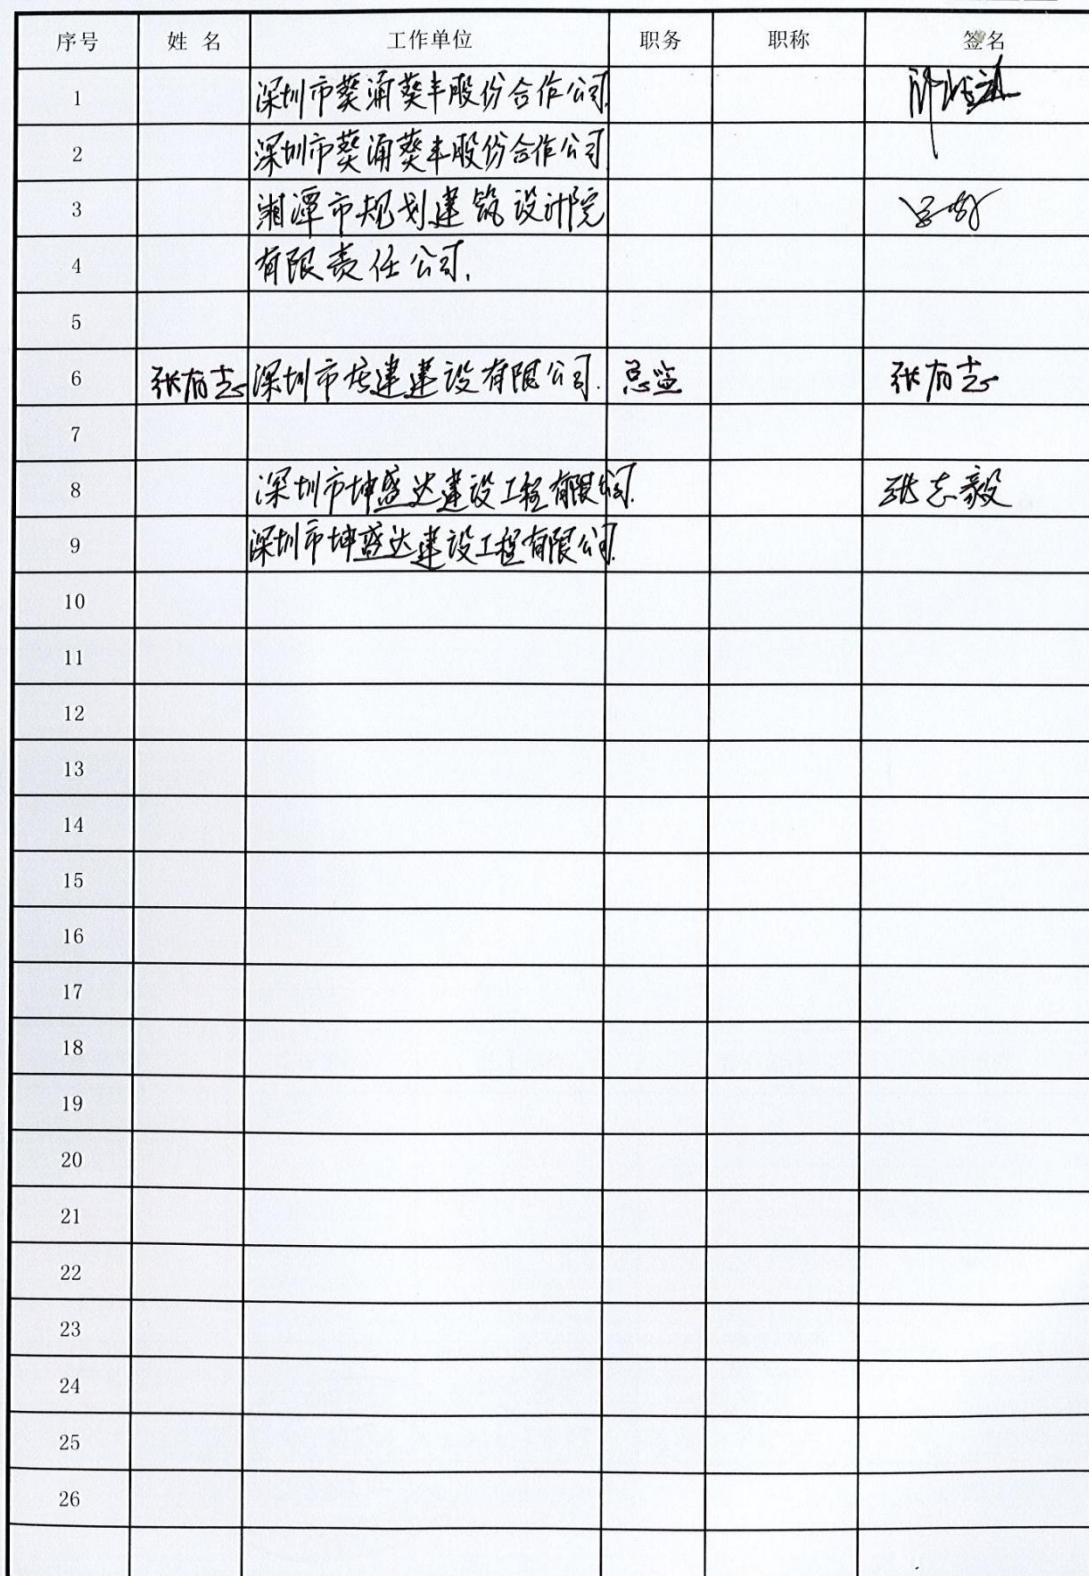 序号 姓 名 工作单位 职务 职称 签名
1 深圳市葵涌葵丰股份合作公司
2 深圳市葵涌葵丰股份合作公司
3 湘潭市规划建筑设计院
4 有限责任公司.
5
6 张有志 深圳市房建建设有限公司. 总监 张有志
7
8 深圳市坤盛达建设工程有限公司. 张志毅
9 深圳市坤盛达建设工程有限公司.
10
11
12
13
14
15
16
17
18
19
20
21
22
23
24
25
26